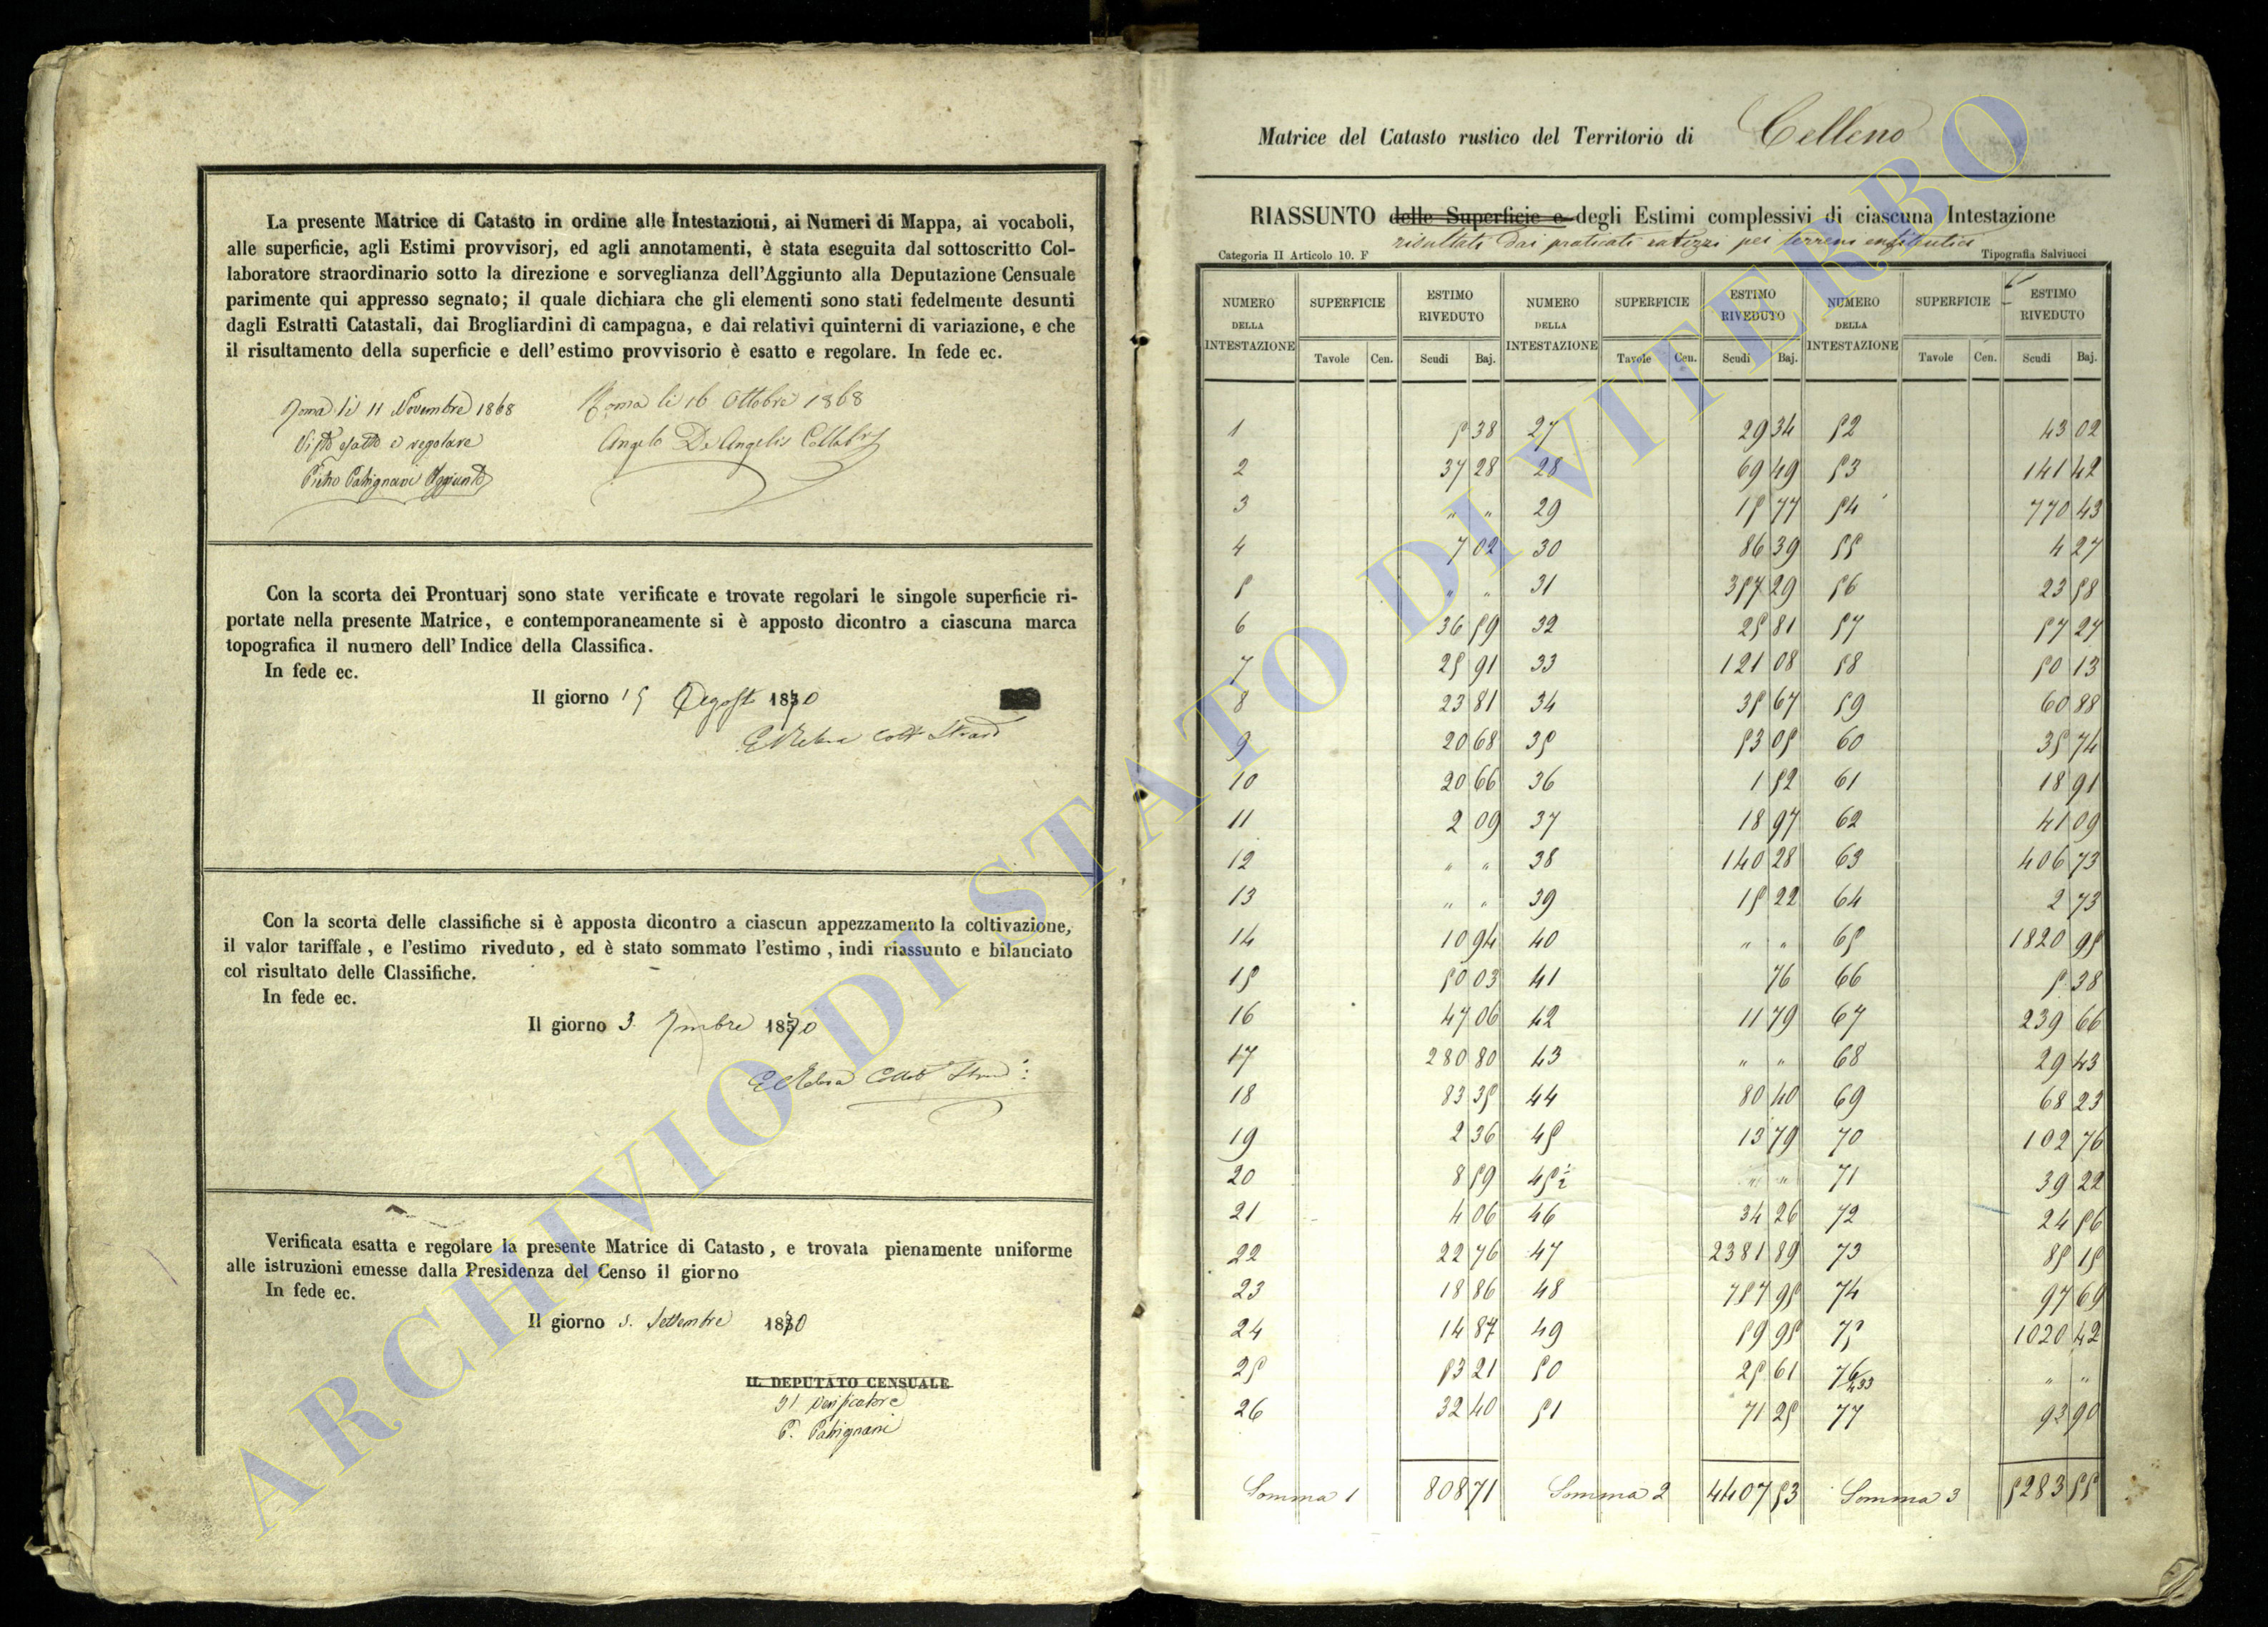 La presente Matrice di Catasto in ordine alle Intestazioni, ai Numeri di Mappa, ai vocaboli,
alle superficie, agli Estimi provvisorj, ed agli annotamenti, è stata eseguita dal sottoscritto Col-
laboratore straordinario sotto la direzione e sorveglianza dell'Aggiunto alla Deputazione Censuale
parimente qui appresso segnato; il quale dichiara che gli elementi sono stati fedelmente desunti
dagli Estratti Catastali, dai Brogliardini di campagna, e dai relativi quinterni di variazione, e che
il risultamento della superficie e dell'estimo provvisorio è esatto e regolare. In fede ec.
Roma li 11 Novembre 1868
Visto esatto e regolare
Pietro Patrignani Aggiunto
Roma li 16 Ottobre 1868
Angelo De Angelis
Con la scorta dei Prontuarj sono state verificate e trovate regolari le singole superficie ri-
portate nella presente Matrice, e contemporaneamente si è apposto dicontro a ciascuna marca
topografica il numero dell'Indice della Classifica.
In fede ec.
Il giorno 15 Agosto 1870
Con la scorta delle classifiche si è apposta dicontro a ciascun appezzamento la coltivazione,
il valor tariffale, e l'estimo riveduto, ed è stato sommato l'estimo, indi riassunto e bilanciato
col risultato delle Classifiche.
In fede ec.
Il giorno 3. 7mbre 1870
Verificata esatta e regolare la presente Matrice di Catasto, e trovata pienamente uniforme
alle istruzioni emesse dalla Presidenza del Censo il giorno
In fede ec.
Il giorno 5. Settembre 1870
IL DEPUTATO CENSUALE
Il Verificatore
P. Patrignani
Matrice del Catasto rustico del Territorio di Celleno
RIASSUNTO delle Superficie e degli Estimi complessivi di ciascuna Intestazione
risultati dai praticati ratizzi pei terreni enfiteutici
Categoria II Articolo 10. F
Tipografia Salviucci
NUMERO DELLA INTESTAZIONE SUPERFICIE ESTIMO RIVEDUTO NUMERO DELLA INTESTAZIONE SUPERFICIE ESTIMO RIVEDUTO NUMERO DELLA INTESTAZIONE SUPERFICIE ESTIMO RIVEDUTO
Tavole Cen. Scudi Baj. Tavole Cen. Scudi Baj. Tavole Cen. Scudi Baj.
1 5 38 27 29 34 52 43 02
2 37 28 28 69 49 53 141 42
3 " " 29 15 77 54 770 43
4 7 02 30 86 39 55 4 27
5 " " 31 357 29 56 23 58
6 36 59 32 25 81 57 57 27
7 25 91 33 121 08 58 50 13
8 23 81 34 35 67 59 60 88
9 20 68 35 53 05 60 35 74
10 20 66 36 1 52 61 18 91
11 2 09 37 18 97 62 41 09
12 " " 38 140 28 63 406 73
13 " " 39 15 22 64 2 73
14 10 94 40 " " 65 1820 95
15 50 03 41 76 66 5 38
16 47 06 42 11 79 67 239 66
17 280 80 43 " " 68 29 43
18 83 35 44 80 40 69 68 23
19 2 36 45 13 79 70 102 76
20 8 59 45 1/2 " " 71 39 22
21 4 06 46 34 26 72 24 56
22 22 76 47 2381 89 73 85 15
23 18 86 48 757 95 74 97 69
24 14 87 49 59 95 75 1020 42
25 53 21 50 25 61 76/433 " "
26 32 40 51 71 25 77 93 90
Somma 1 808 71 Somma 2 4407 53 Somma 3 5283 55
ARCHIVIO DI STATO DI VITERBO